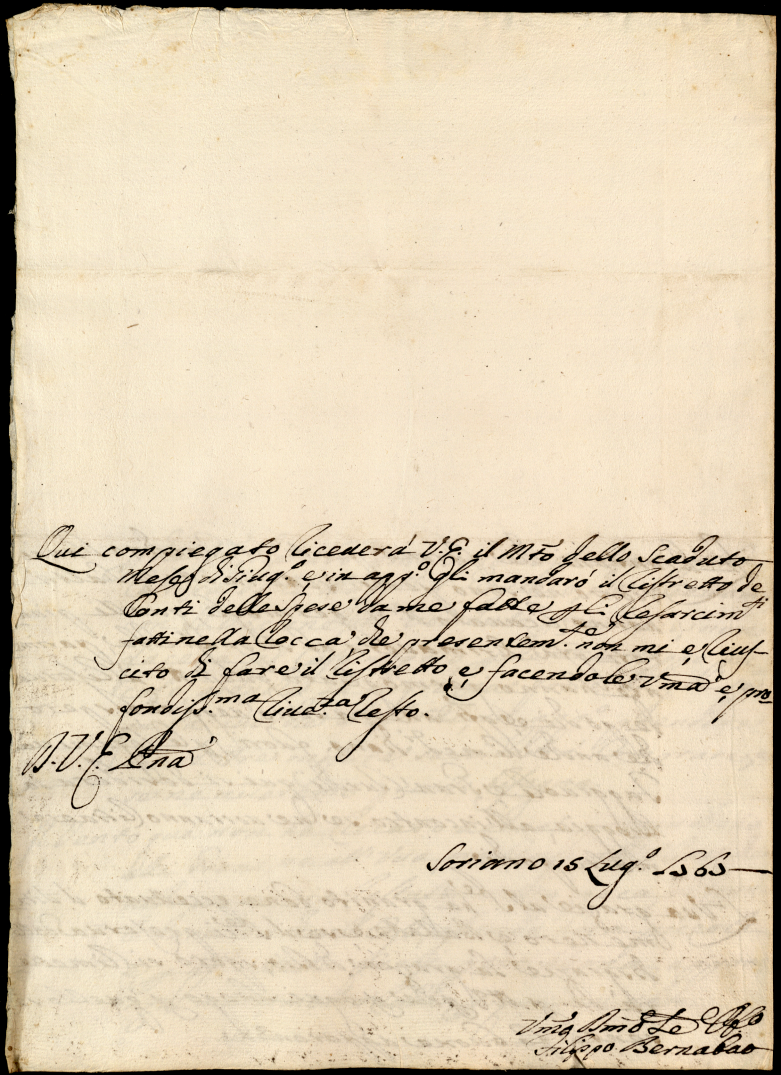 Qui compiegato riceverà V.E. il Mto dello scaduto
Mese di Giug.o e in app.o gli mandarò il ristretto de
Conti delle spese da me fatte p li resarcim.ti
fatti nella rocca, che presentem.te non mi è rius-
cito di fare il ristretto e facendole Vma e pro
fondiss.ma river.za resto.
D. V. E. Pna
Soriano 15 Lug.o
Filippo Bernabao